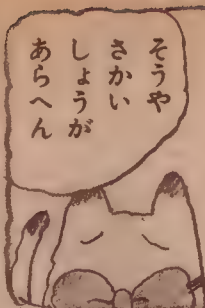 そうや
さかい
しょうが
あらへん